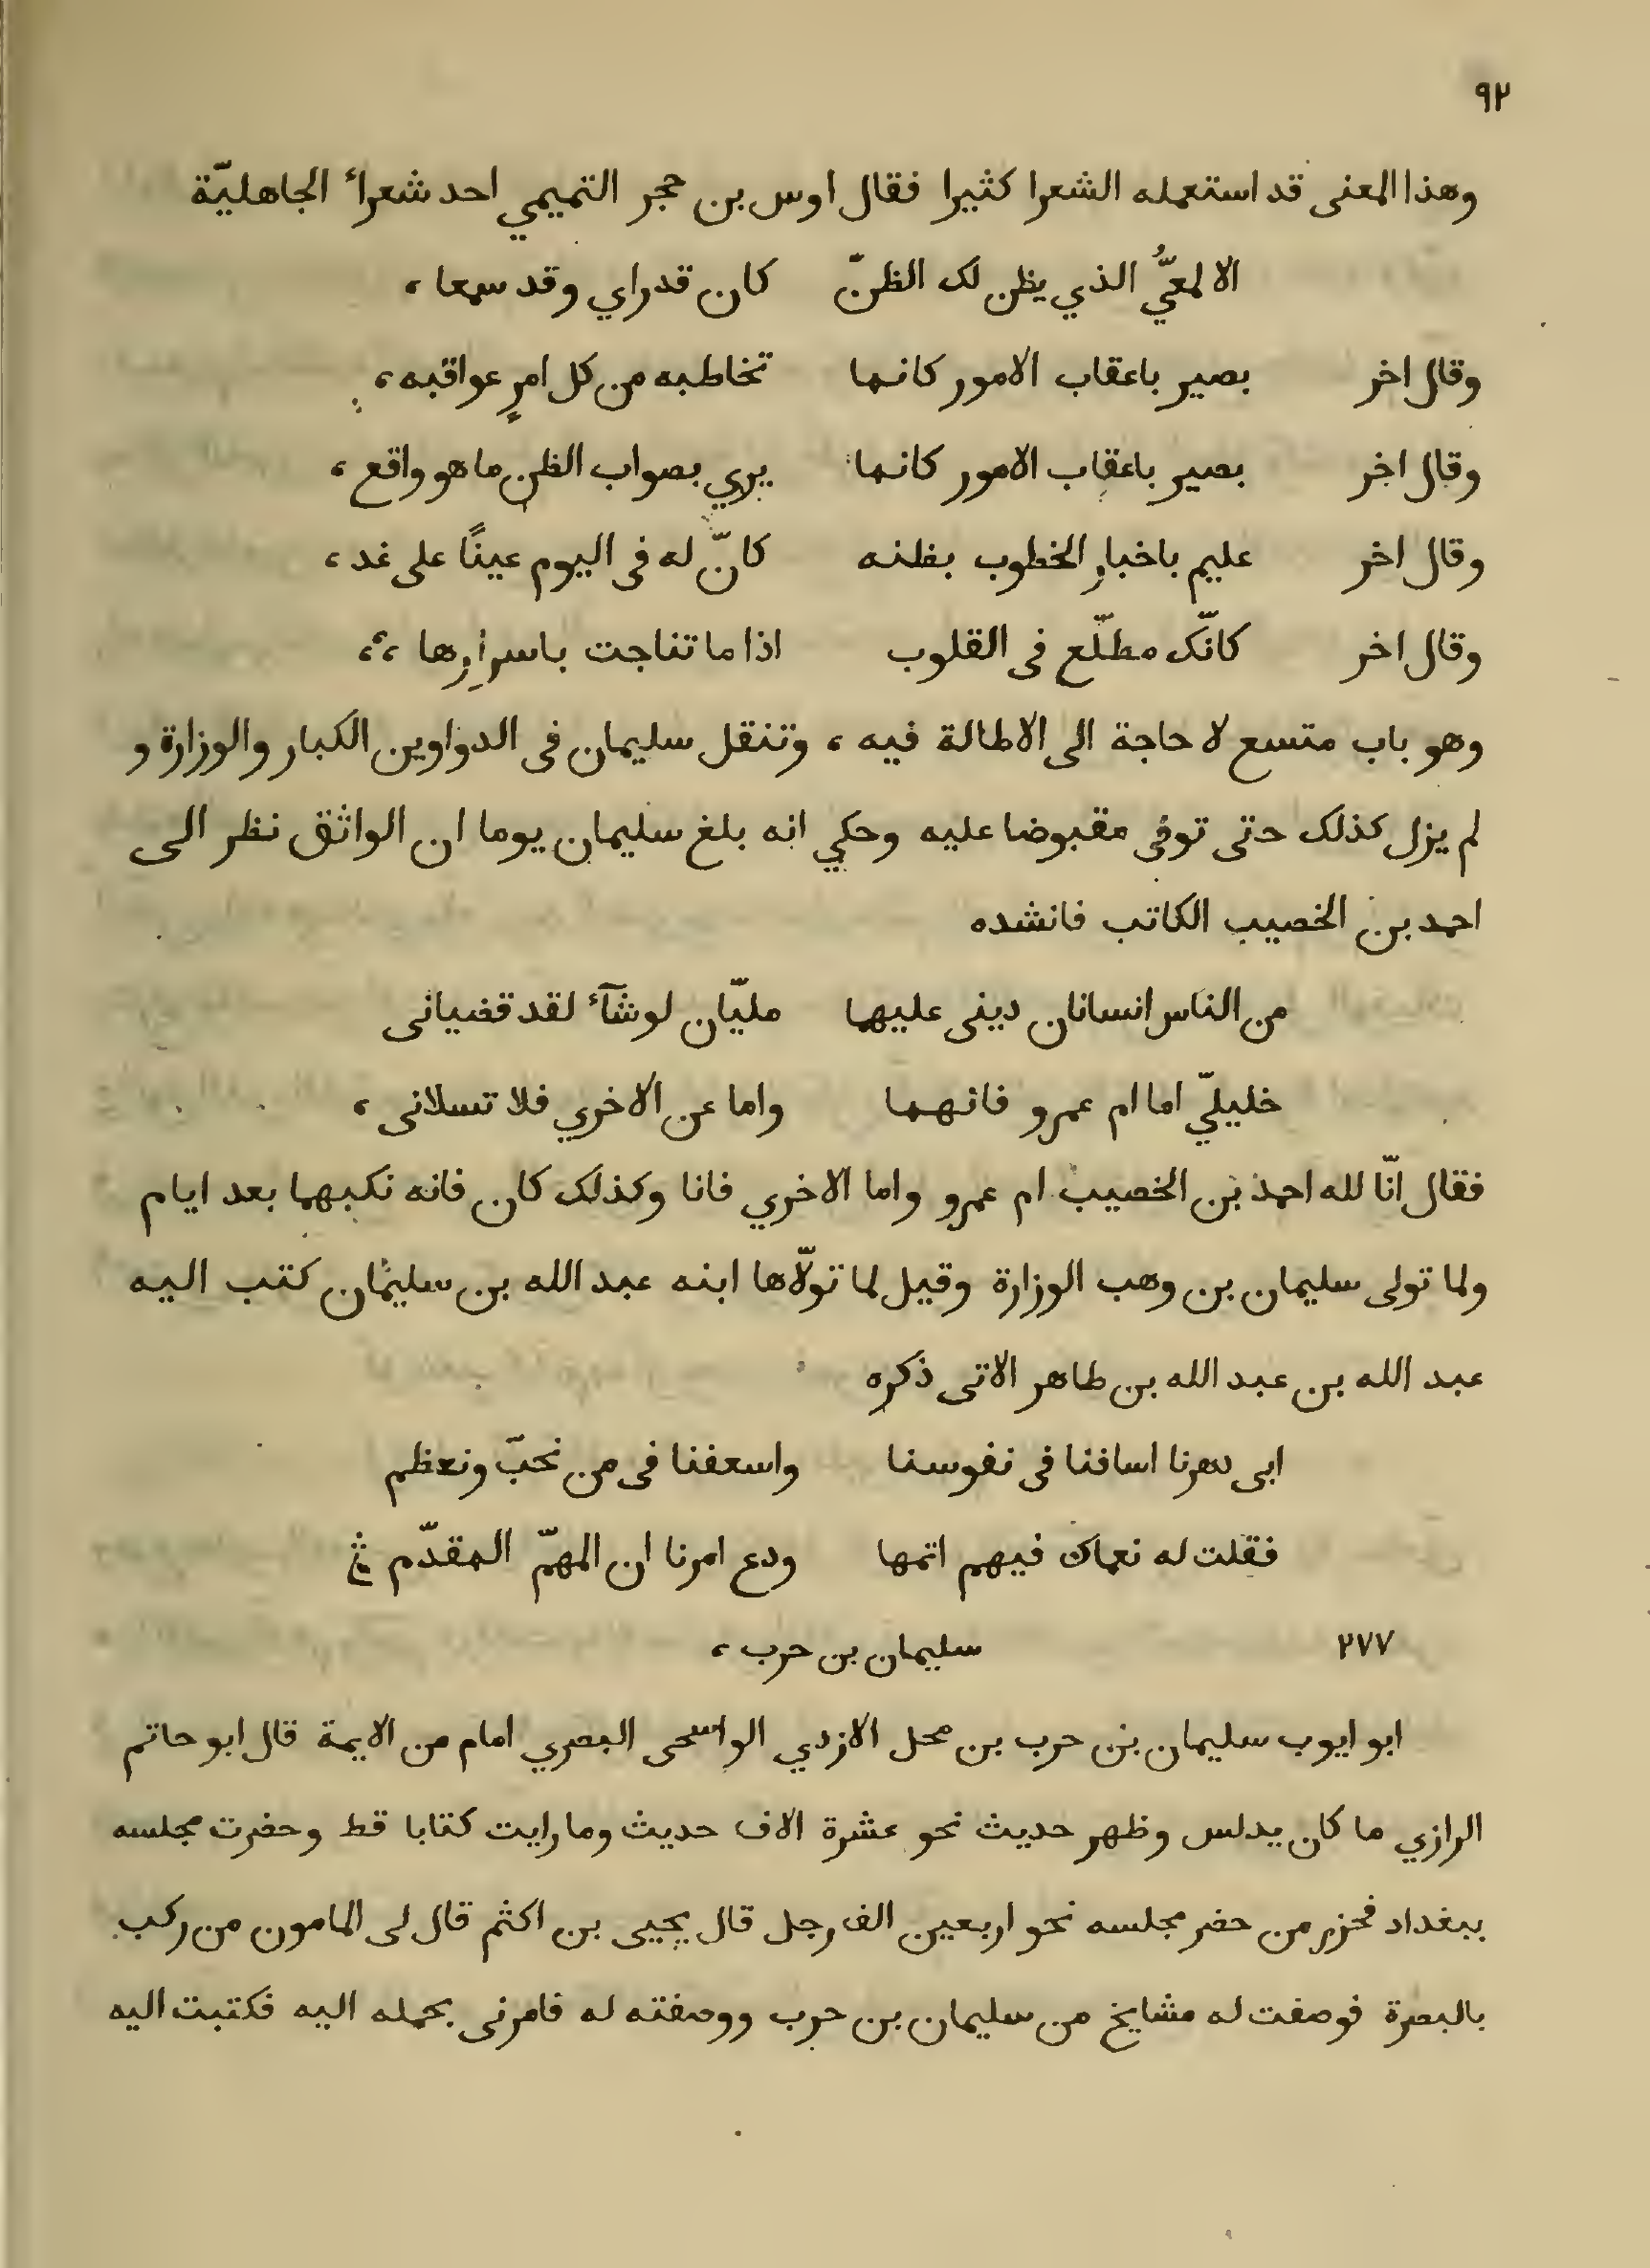 ٩٢
وهذا المعنى قد استعمله الشعرا كثيرا فقال اوس بن حجر التميمي احد شعراء الجاهليّة
الالمعيُّ الذي يظن لك الظنّ كان قد راي وقد سمعا ،
وقال اخر بصير باعقاب الامور كانما تخاطبه من كل امرٍ عواقبه ،
وقال اخر بصير باعقاب الامور كانما يري بصواب الظن ما هو واقع ،
وقال اخر عليم باخبار الخطوب بظنه كانّ له فى اليوم عينًا على غد ،
وقال اخر كانّك مطلّع فى القلوب اذا ما تناجت باسرارها ،،
وهو باب متسع لا حاجة الى الاطالة فيه ، وتنقل سليمان فى الدواوين الكبار والوزارة و
لم يزل كذلك حتى توفي مقبوضا عليه وحكي انه بلغ سليمان يوما ان الواثق نظر الى
احمد بن الخصيب الكاتب فانشده
من الناس انسانان دينى عليهما مليّان لو شآء لقد قضيانى
خليليّ اما ام عمرو فانهما واما عن الاخري فلا تسلانى ،
فقال انّا لله احمد بن الخصيب ام عمرو واما الاخري فانا وكذلك كان فانه نكبهما بعد ايام
ولما تولى سليمان بن وهب الوزارة وقيل لما تولّاها ابنه عبد الله بن سليمان كتب اليه
عبد الله بن عبد الله بن طاهر الاتى ذكره
ابى دهرنا اسافنا فى نفوسنا واسعفنا فى من نحبّ ونعظم
فقلت له نعماك فيهم اتمها ودع امرنا ان المهمّ المقدّم
٢٧٧ سليمان بن حرب ،
ابو ايوب سليمان بن حرب بن محل الازدي الواسحى البصري امام من الايمة قال ابو حاتم
الرازي ما كان يدلس وظهر حديث نحو عشرة الاف حديث وما رايت كتابا قط وحضرت مجلسه
ببغداد فحزر من حضر مجلسه نحو اربعين الف رجل قال يحيى بن اكثم قال لى المامون من ركب
بالبصرة فوصفت له مشايخ من سليمان بن حرب ووصفته له فامرنى بحمله اليه فكتبت اليه